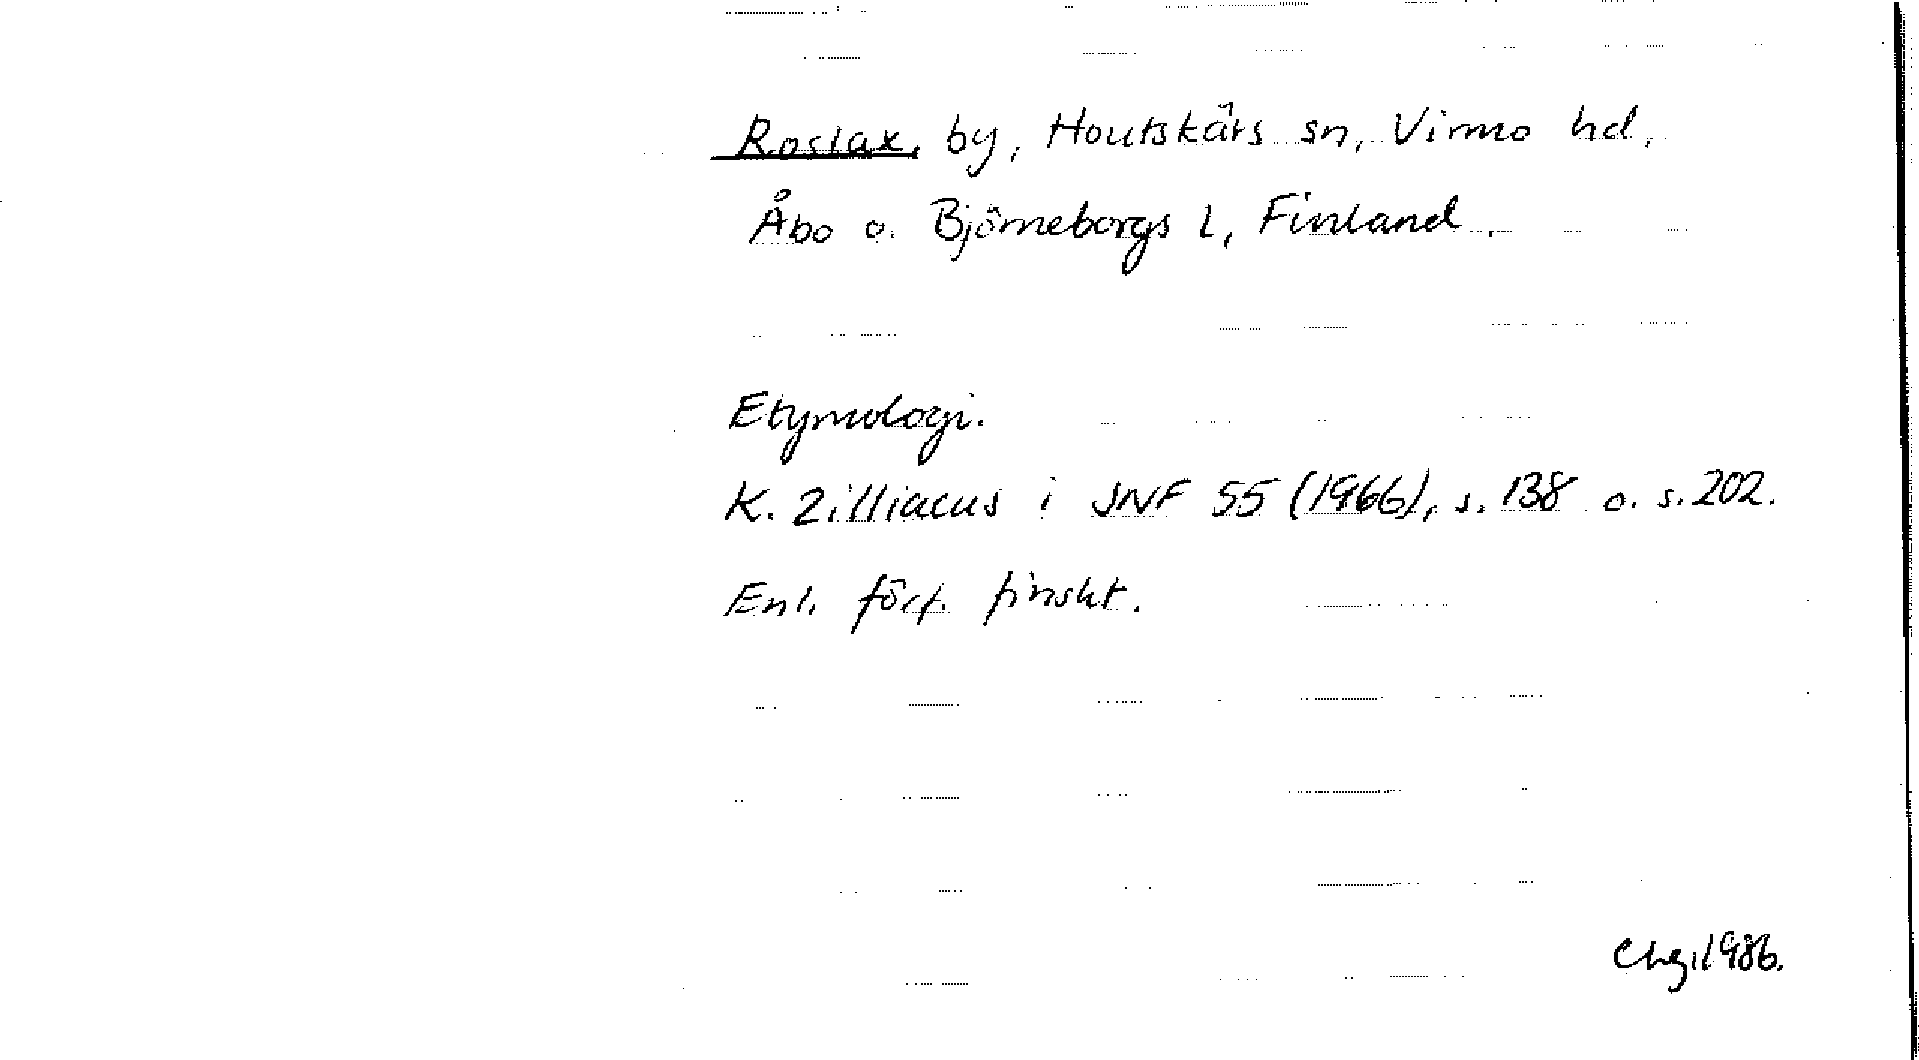 Roslax, by, Houtskärs sn, Virmo hd,
Åbo o. Björneborgs l, Finland.
Etymologi.
K. Zilliacus i SNF 55 (1966), s. 138 o. s. 202.
Enl. förf. finskt.
1986.